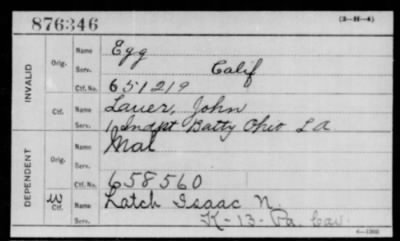 876346
(3-H-4)
INVALID
Orig.
Name Egg
Serv. Calif
Ctf. No. 651219
Ctf.
Name Lauer, John
Serv. 1 Indpt Batty Ohio L A
DEPENDENT
Orig.
Name Mal
Serv.
Ctf. No. 658560
W
Ctf.
Name Latch Isaac N.
Serv. K-13-Pa. Cav.